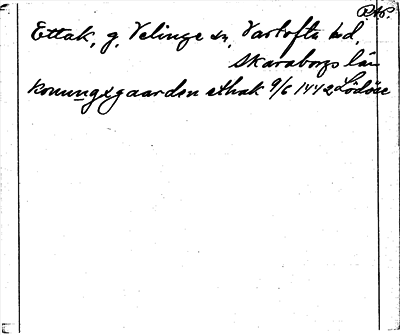 RAp.
Ettak, g, Velinge sn, Vartofta hd,
Skaraborgs län
konungxgaarden ethak 9/6 1442 Lödöse